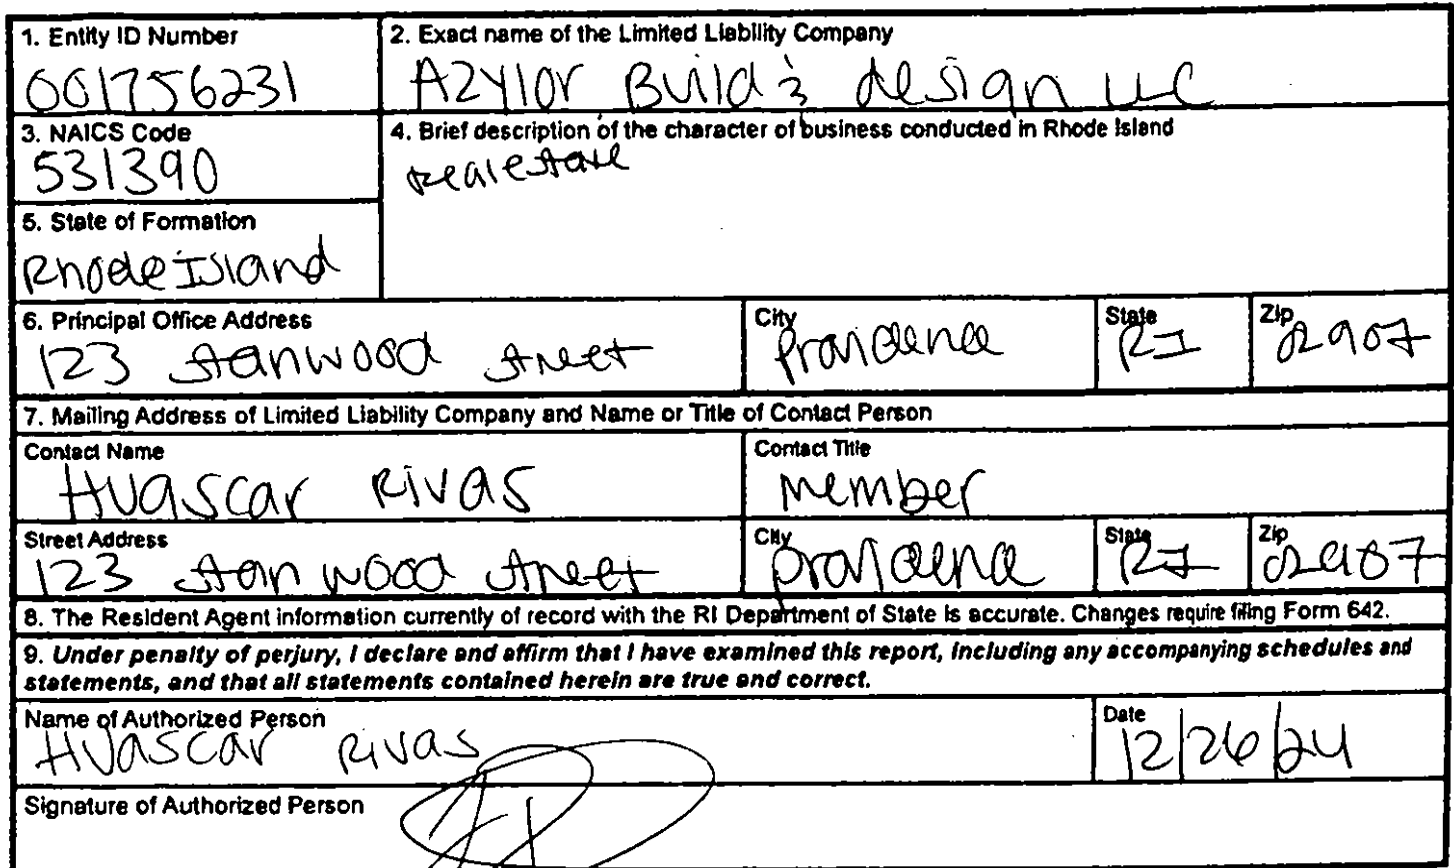 1. Entity ID Number
001756231
2. Exact name of the Limited Liability Company
Azylor Build & design LLC
3. NAICS Code
531390
4. Brief description of the character of business conducted in Rhode Island
real estate
5. State of Formation
Rhode Island
6. Principal Office Address
123 Stanwood Street
City
Providence
State
RI
Zip
02907
7. Mailing Address of Limited Liability Company and Name or Title of Contact Person
Contact Name
Huascar Rivas
Contact Title
Member
Street Address
123 Stanwood Street
City
Providence
State
RI
Zip
02907
8. The Resident Agent information currently of record with the RI Department of State is accurate. Changes require filing Form 642.
9. Under penalty of perjury, I declare and affirm that I have examined this report, including any accompanying schedules and
statements, and that all statements contained herein are true and correct.
Name of Authorized Person
Huascar Rivas
Date
12/26/24
Signature of Authorized Person